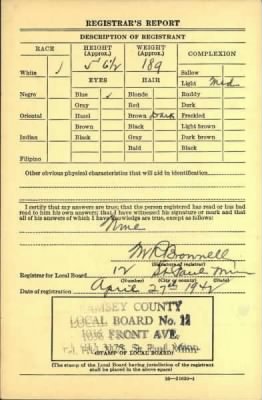 REGISTRAR'S REPORT
DESCRIPTION OF REGISTRANT
RACE HEIGHT (Approx.) WEIGHT (Approx.) COMPLEXION
5 6½ 189
White Sallow
EYES HAIR Light Med
Negro Blue Blonde Ruddy
Gray Red Dark
Oriental Hazel Brown Dark Freckled
Brown Black Light brown
Indian Black Gray Dark brown
Bald Black
Filipino
Other obvious physical characteristics that will aid in identification
I certify that my answers are true; that the person registered has read or has had
read to him his own answers; that I have witnessed his signature or mark and that
all of his answers of which I have knowledge are true, except as follows:
None
(Signature of registrar)
Registrar for Local Board 12 St Paul Minn
(Number) (City or county) (State)
Date of registration April 27th 1942
RAMSEY COUNTY
LOCAL BOARD No. 12
FRONT AVE.
St. Paul, Minn.
(STAMP OF LOCAL BOARD)
(The stamp of the Local Board having jurisdiction of the registrant
shall be placed in the above space)